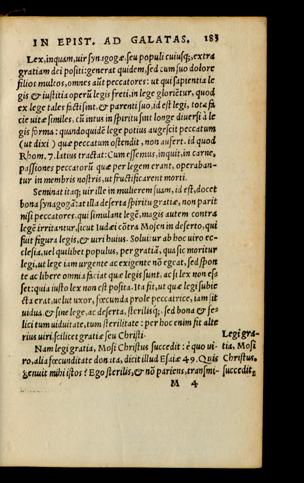 IN EPIST. AD GALATAS. 183
Lex, inquam, uir synagogæ, seu populi cuiusq;, extra
gratiam dei positi: generat quidem, sed cum suo dolore
filios multos, omnes aũt peccatores: ut qui sapientia le
gis & iustitia operũ legis freti, in lege gloriẽtur, quod
ex lege tales facti sint, & parenti suo, id est legi, tota fa
cie uitæ similes, cũ intus in spiritu sint longe diuersi à le
gis forma: quandoquidẽ lege potius augescit peccatum
(ut dixi) quæ peccatum ostendit, non aufert. id quod
Rhom. 7. latius tractat: Cum essemus, inquit, in carne,
passiones peccatorũ quæ per legem erant, operaban-
tur in membris nostris, ut fructificarent morti.
Seminat itaq; uir ille in mulierem suam, id est, docet
bona synagogã: at illa deserta spiritu gratiæ, non parit
nisi peccatores, qui simulant legẽ, magis autem contra
legẽ irritantur, sicut Iudæi cõtra Mosen in deserto, qui
fuit figura legis, & uiri huius. Soluitur ab hoc uiro ec-
clesia, uel quilibet populus, per gratiã, qua sic moritur
legi, ut lege iam urgente ac exigente nõ egeat, sed spon
te ac libere omnia faciat quæ legis sunt, ac si lex non es
set: quia iusto lex non est posita. Ita fit, ut quæ legi subie
cta erat, uelut uxor, fœcunda prole peccatrice, iam sit
uidua, & sine lege, ac deserta, sterilisq;, sed bona & fœ
lici tum uiduitate, tum sterilitate: per hoc enim fit alte
rius uiri, scilicet gratiæ seu Christi.
Nam legi gratia, Mosi Christus succedit: é quo ui-
ro, alia fœcunditate donata, dicit illud Esaiæ 49. Quis
genuit mihi istos? Ego sterilis, & nõ pariens, transmi-
M 4
Legi gra-
tia, Mosi
Christus,
succedit.